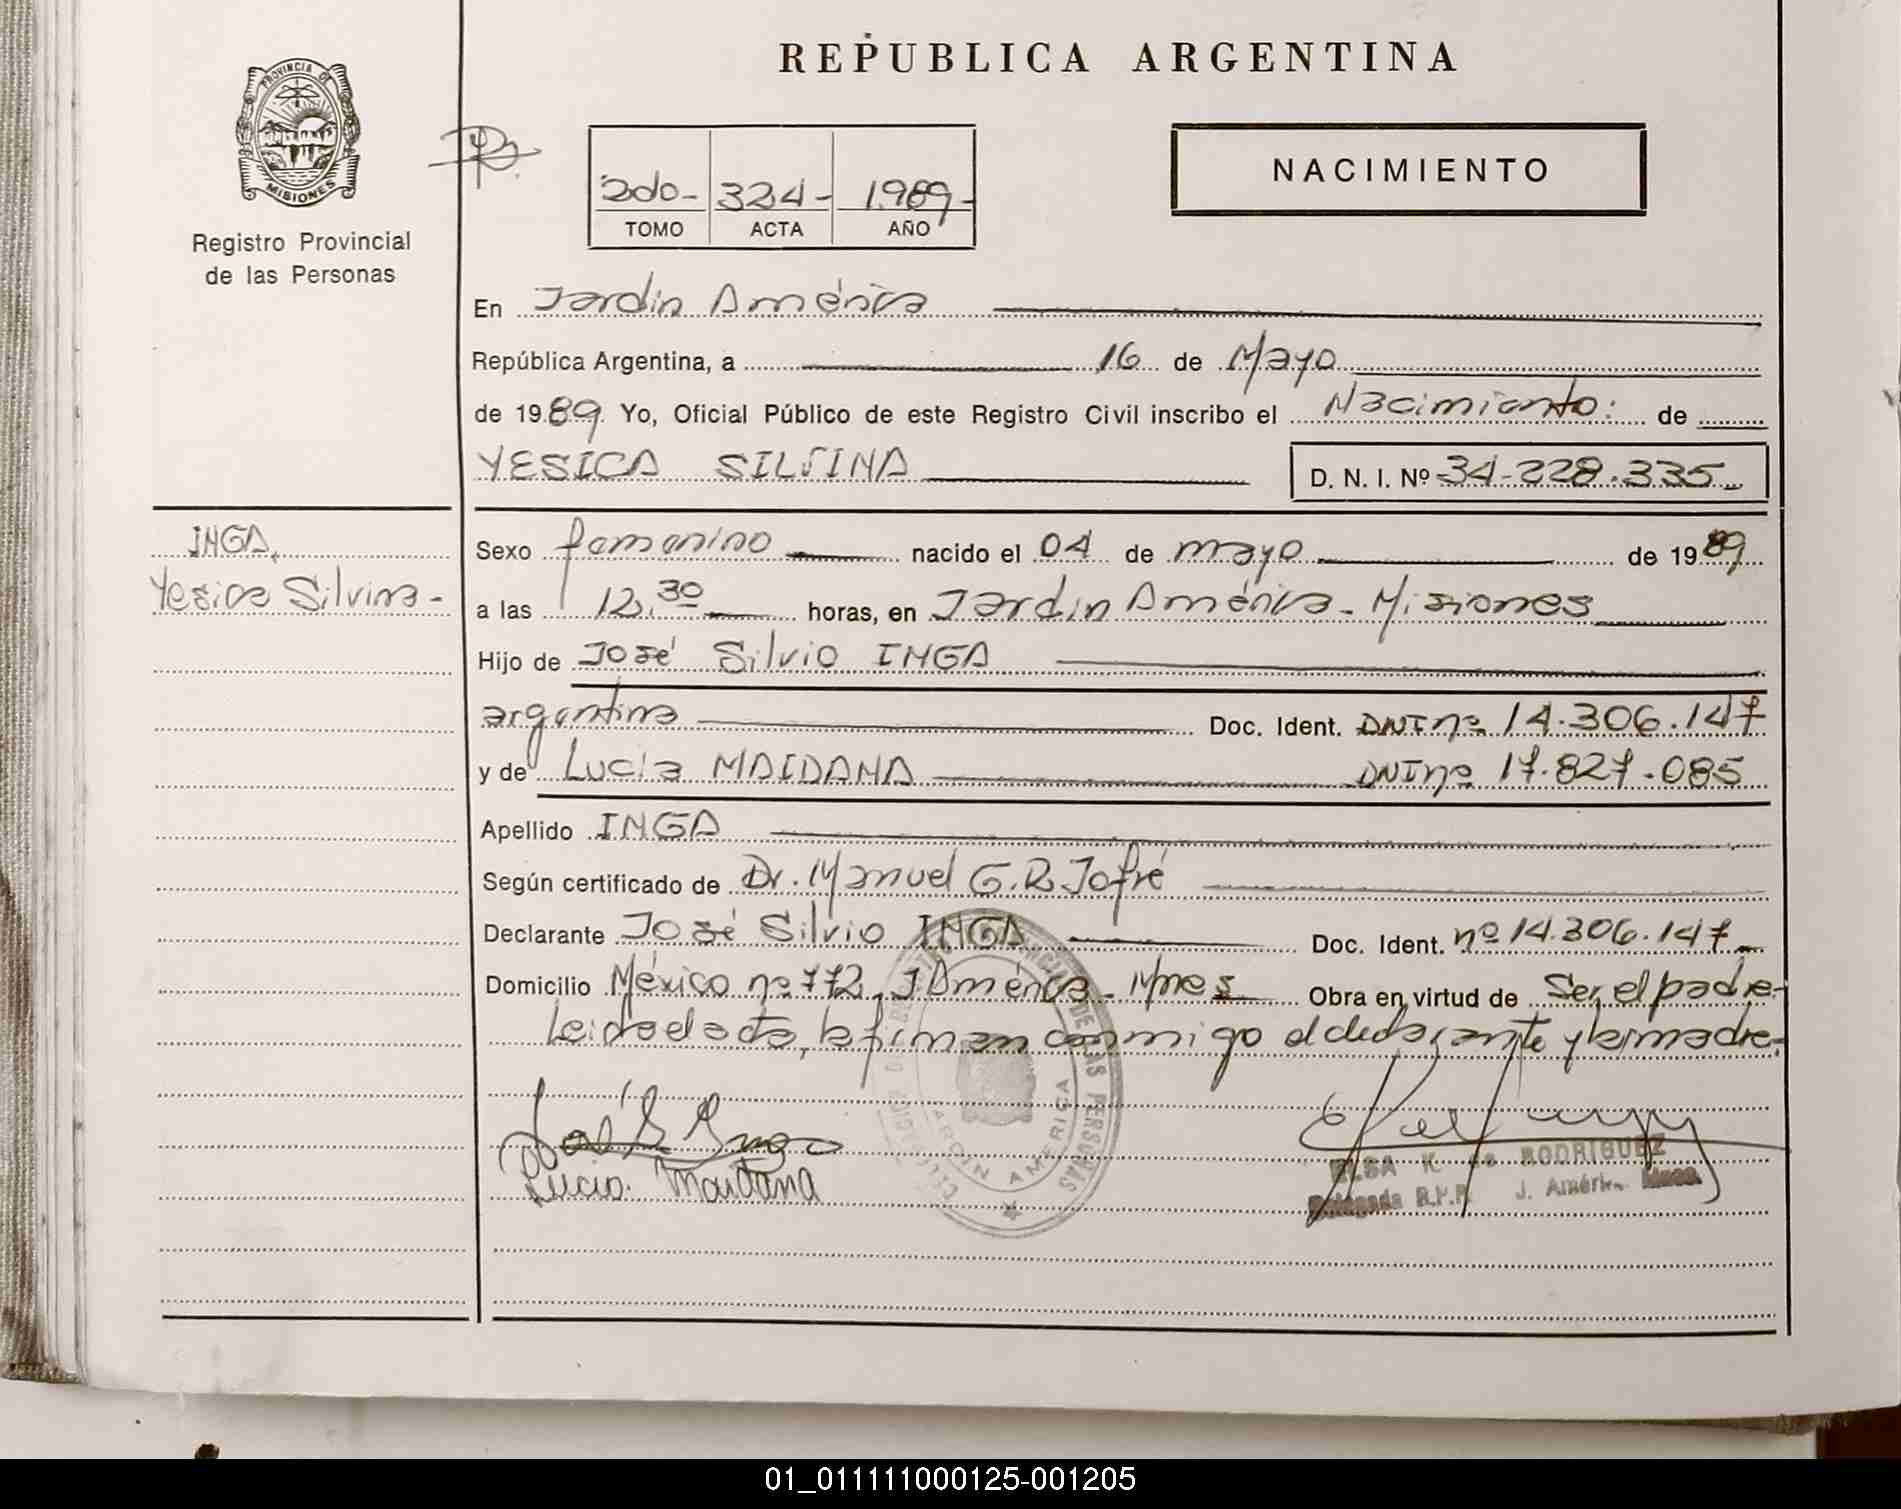 REPUBLICA ARGENTINA
PROVINCIA DE
MISIONES
Registro Provincial
de las Personas
2do- 324- 1.989-
TOMO ACTA AÑO
NACIMIENTO
En Jardin América
República Argentina, a 16 de Mayo
de 1989. Yo, Oficial Público de este Registro Civil inscribo el Nacimiento: de
YESICA SILVINA D. N. I. Nº 34-228.335
INGA,
Yesica Silvina-
Sexo femenino nacido el 04 de mayo de 1989
a las 12,30 horas, en Jardin América - Misiones
Hijo de José Silvio INGA
argentina Doc. Ident. DNI nº 14.306.147
y de Lucia MAIDANA DNI nº 17.827.085
Apellido INGA
Según certificado de Dr. Manuel G. R. Jofré
Declarante José Silvio INGA Doc. Ident. nº 14.306.147
Domicilio México nº 772, J América - Mnes Obra en virtud de Ser el padre-
Leida el acta, la firman conmigo el declarante y la madre.
José S Inga
Lucia Maidana
DE LAS PERSONAS
JARDIN AMERICA
ELSA K. de RODRIGUEZ
Delegada R.P.P. J. América Mnes.
01_011111000125-001205